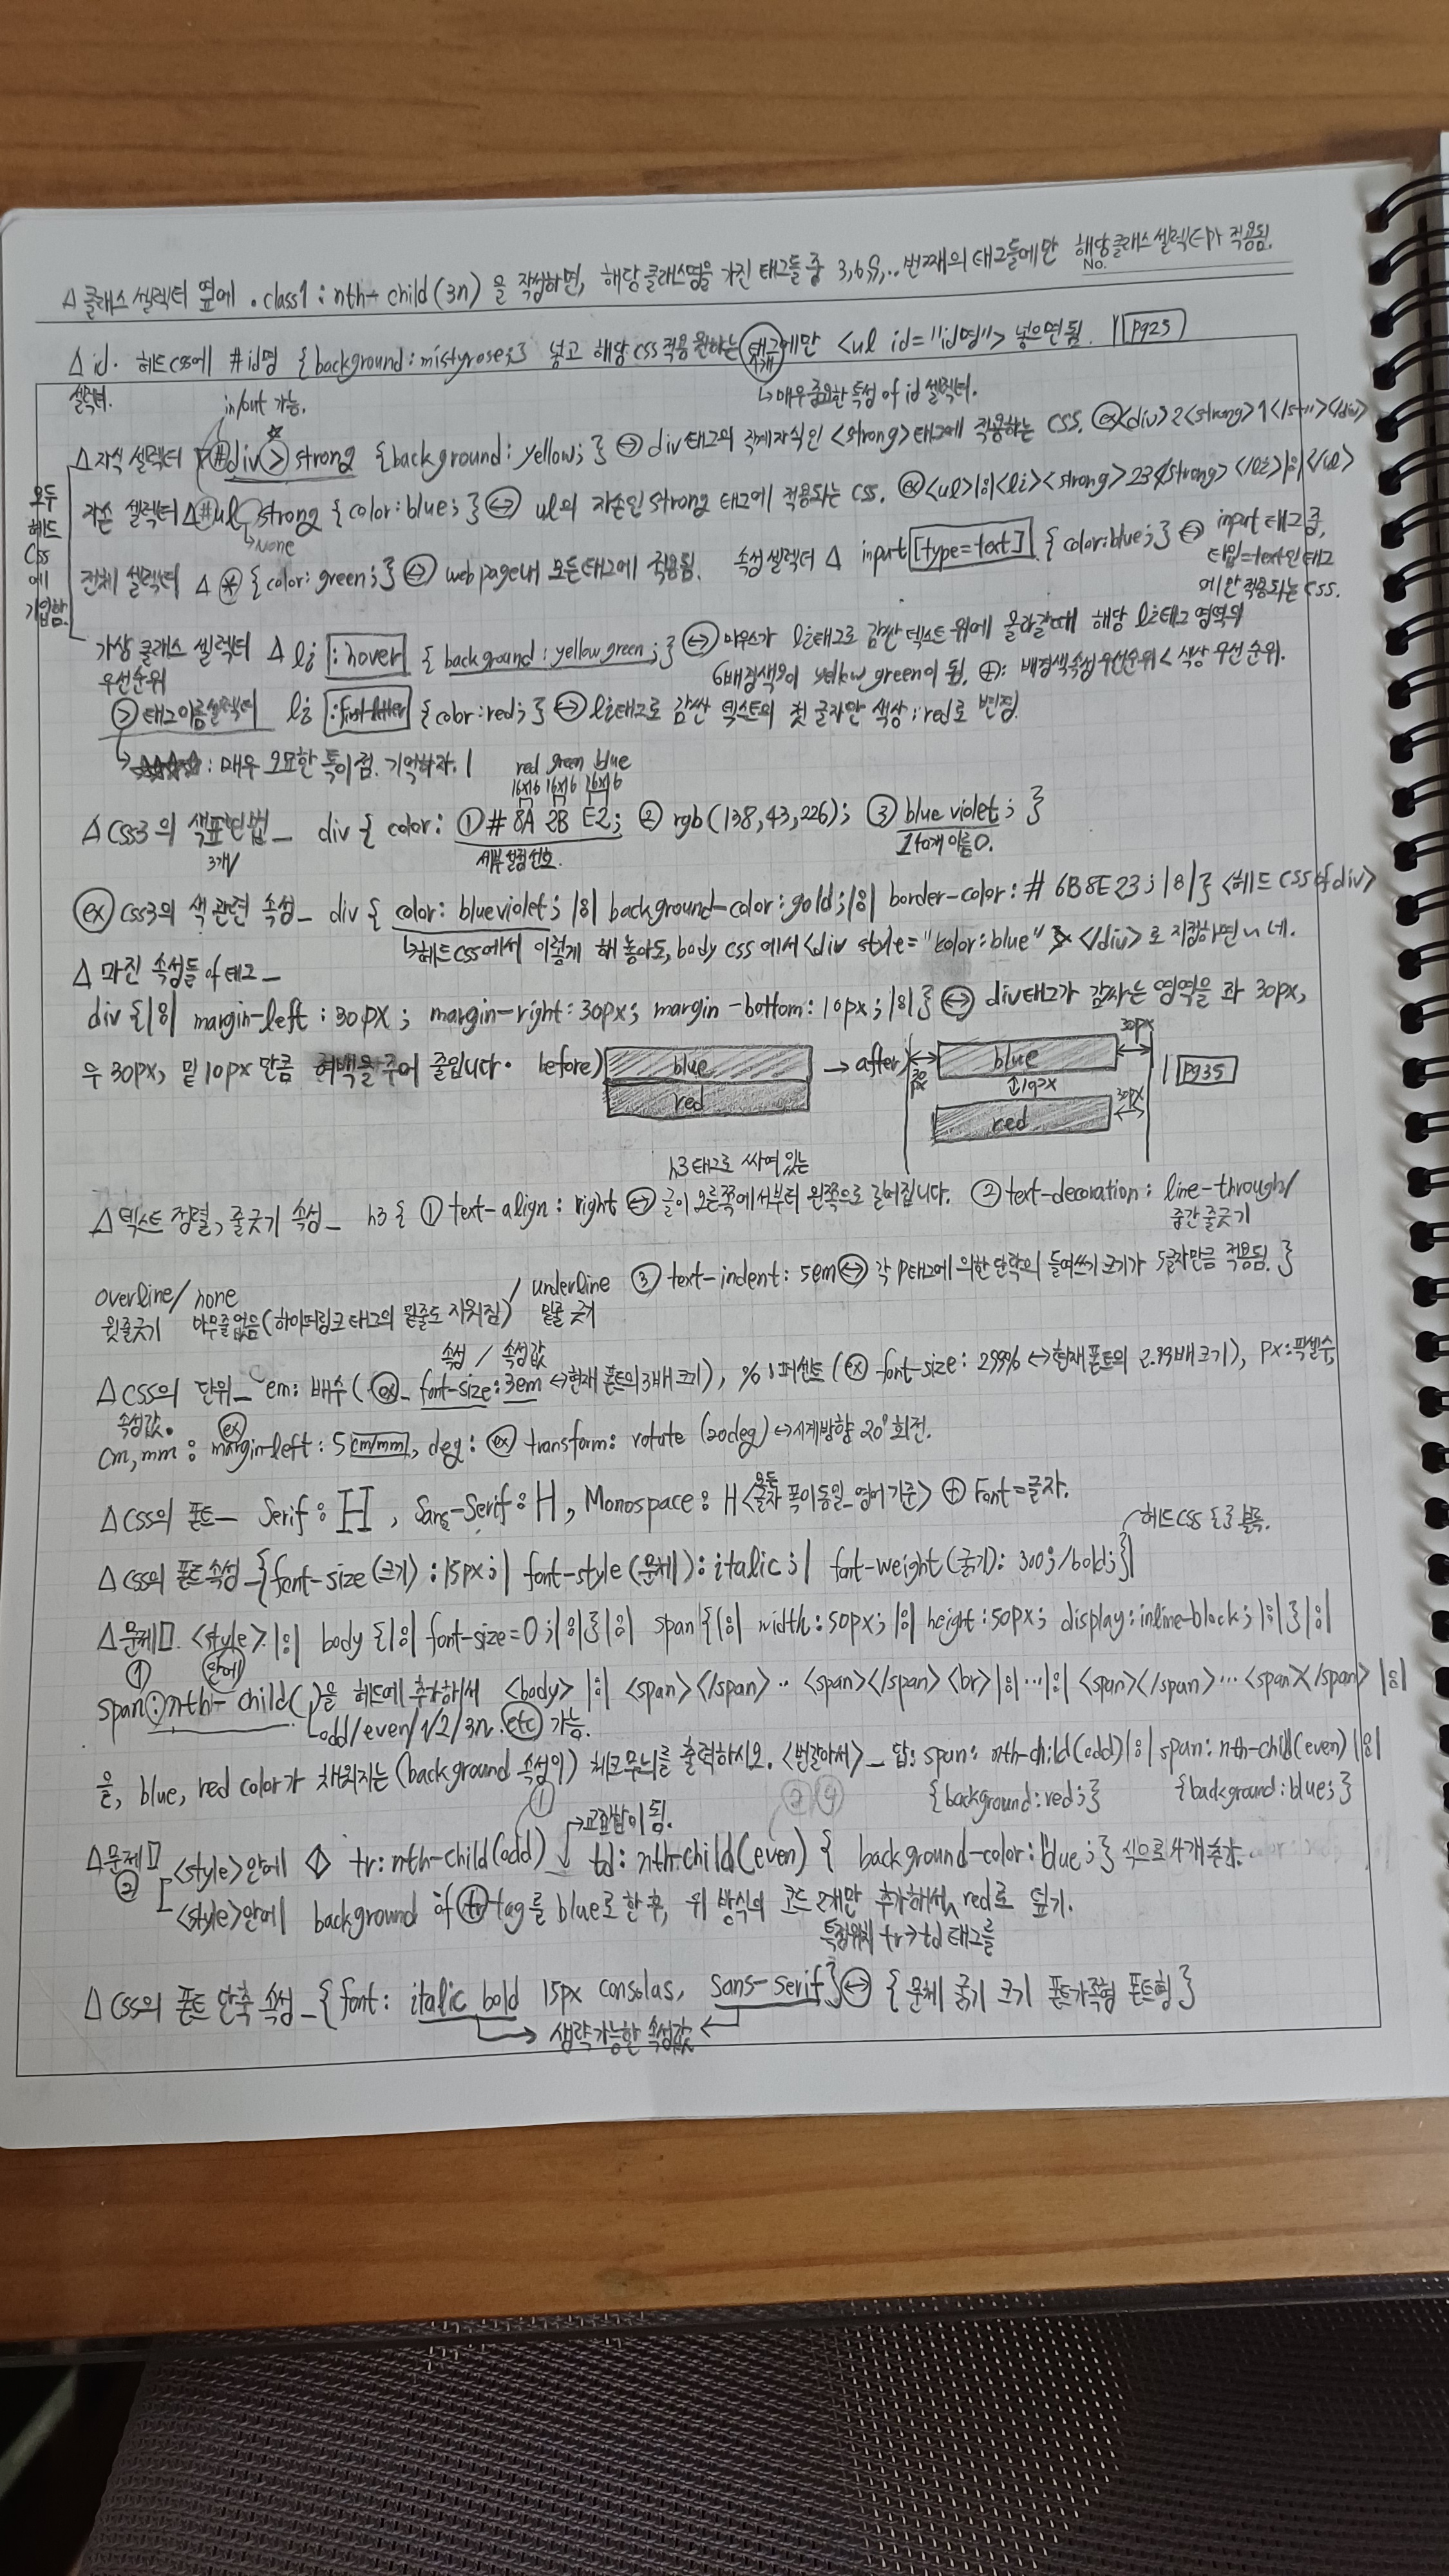 △ 클래스 셀렉터 옆에 .class1 : nth-child(3n) 을 작성하면, 해당 클래스명을 가진 태그들 중 3,6,9,.. 번째의 태그들에만 해당 클래스 셀렉터가 적용됨.
No.
△ id. 헤드 css에 #id명 {background: mistyrose;} 넣고 해당 css 적용 원하는 태그에만 <ul id="id명"> 넣으면 됨. pg25
셀렉터. 1개
in/out 가능. ↳ 매우 중요한 특성 of id 셀렉터.
△ 자식 셀렉터 #div > strong {background: yellow;} ↔ div태그의 직계자식인 <strong>태그에 적용하는 CSS. ex <div>2<strong>1</st"></div>
자손 셀렉터 △ #ul strong {color: blue;} ↔ ul의 자손인 strong 태그에 적용되는 CSS. ex <ul>|:|<li><strong>23</strong></li>|:|</ul>
↳ None
모두 헤드 CSS 에 기입함.
전체 셀렉터 △ * {color: green;} ↔ web page내 모든 태그에 적용됨. 속성 셀렉터 △ input [type=text] {color: blue;} ↔ input 태그 중,
타입=text인 태그
에만 적용되는 CSS.
가상 클래스 셀렉터 △ li :hover {background: yellowgreen;} ↔ 마우스가 li태그로 감싼 텍스트 위에 올라갈때 해당 li태그 영역의
우선순위 배경색이 yellow green이 됨. ⊕: 배경색속성 우선순위 < 색상 우선순위.
> 태그이름셀렉터 li :first-letter {color: red;} ↔ li태그로 감싼 텍스트의 첫 글자만 색상: red로 변경
↳ : 매우 오묘한 특이점. 기억하자. |
red green blue
16x16 16x16 16x16
△ CSS3의 색표현법_ div { color: ①# 8A 2B E2; ② rgb(138,43,226); ③ blue violet; }
3개 세부설정선호. 140개 이름O.
ex CSS3의 색 관련 속성_ div { color: blueviolet; |8| background-color: gold; |8| border-color: # 6B8E23; |8| } <헤드 CSS of div>
↳헤드 CSS에서 이렇게 해 놓아도, body css 에서 <div style="color:blue"> </div>로 지정하면 네.
△ 마진 속성들 of 태그_
div {|8| margin-left : 30px ; margin-right: 30px; margin-bottom: 10px; |8| } ↔ div태그가 감싸는 영역을 좌 30px,
우 30px, 밑 10px 만큼 여백을 주어 줄입니다. before) blue → after) 30px blue 30px pg35
red ↕10px red 30px
h3 태그로 싸여 있는
△ 텍스트 정렬, 줄긋기 속성_ h3 { ① text-align: right ↔ 글이 오른쪽에서부터 왼쪽으로 길어집니다. ② text-decoration: line-through/
중간 줄긋기
overline/ none / underline ③ text-indent: 5em ↔ 각 p태그에 의한 단락의 들여쓰기 크기가 5글자만큼 적용됨. }
윗줄긋기 아무줄없음(하이퍼링크 태그의 밑줄도 지워짐) 밑줄 긋기
속성 / 속성값
△ CSS의 단위_ em: 배수 (ex_ font-size: 3em ↔ 현재 폰트의 3배 크기), % : 퍼센트 (ex font-size: 299% ↔ 현재폰트의 2.99배 크기), px: 픽셀수,
속성값. ex
cm, mm : margin-left : 5 cm/mm, deg : ex transform: rotate (20deg) ↔ 시계방향 20° 회전.
△ CSS의 폰트_ Serif : H , Sans-Serif : H , Monospace : H <모든 글자 폭이 동일_영어 기준> ⊕ Font = 글자.
헤드 CSS { } 블록.
△ CSS의 폰트속성_ {font-size(크기) : 15px; | font-style(문체): italic; | font-weight(굵기): 300;/bold; }
△ 문제 ① <style> |:| body {|:| font-size=0; |:|} |:| span |{|:| width: 50px; |:| height: 50px; display: inline-block; |:| } |:|
안에
span:nth-child( )을 헤드에 추가해서 <body> |:| <span></span> .. <span></span> <br> |:| ... |:| <span></span> ... <span></span> |:|
odd/even/1/2/3n etc 가능.
을, blue, red color가 채워지는 (background 속성의) 체크무늬를 출력하시오. <번갈아서> _ 답: span: nth-child(odd) |:| span: nth-child(even) |:|
{background: red;} {background: blue;}
→교집합이 됨.
△ 문제 ② <style>안에 tr: nth-child(odd) ↓ td: nth-child(even) { background-color: blue; } 식으로 4개 추가.
<style>안에 background of tr tag를 blue로 한 후, 위 방식의 코드 2개만 추가해서 red로 덮기.
특정위치 tr>td 태그를
△ CSS의 폰트 단축 속성_ {font: italic bold 15px consolas, sans-serif} ↔ {문체 굵기 크기 폰트가족형 폰트형 }
→ 생략가능한 속성값 ←